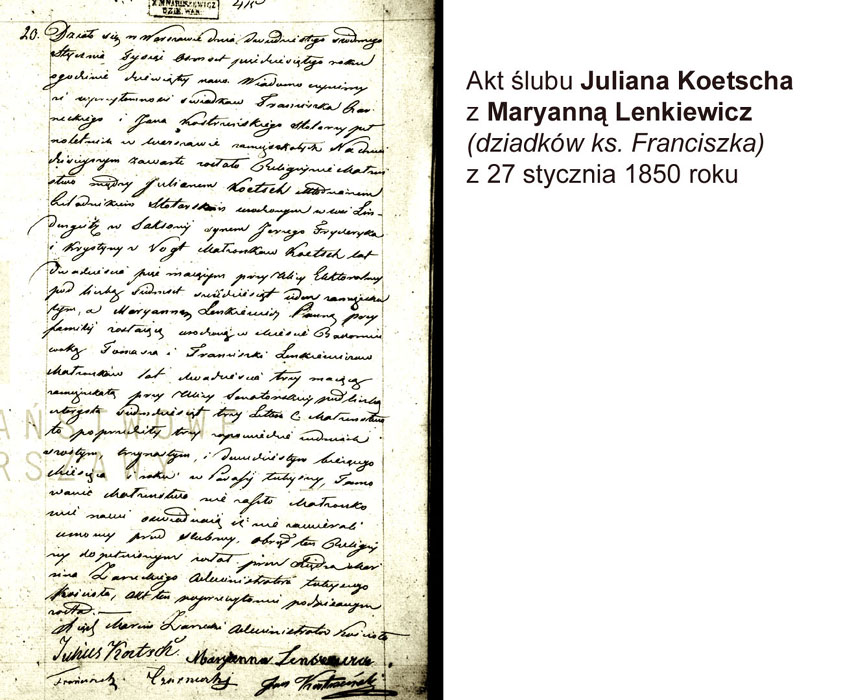 20. Działo się w Warszawie dnia dwudziestego siódmego
Stycznia Tysiąc Osmset pięćdziesiątego roku
o godzinie dziewiąty rano. Wiadomo czynimy
iż w przytomności świadków Franciszka
i Jana Stolarzy peł
noletnich w Warszawie zamieszkałych Na dniu
dzisiejszym zawarte zostało Religijne Małżeń
stwo między Julianem Koetsch
Czeladnikiem Stolarskim urodzonym w wsi Lin
w Saksonij synem Jerzego Fryderyka
i Krystyny z Vogt Małżonków Koetsch lat
dwadzieścia pięć mającym przy Ulicy Elektoralny
pod liczbą Siedmset ieden zamieszka
łym, a Maryanną Lenkiewicz Panną przy
familij zostaiącą urodzoną w mieście Radomiu
córką Tomasza i Franciszki Lenkiewiczów
Małżonków lat dwadzieścia trzy maiącą
zamieszkałą przy Ulicy Senatorskiej pod liczbą
czterysta siedmdziesiąt trzy Litera C. Małżeństwo
to poprzedziły trzy zapowiedzie w dniach
szóstym, trzynastym, i dwudziestym bieżącego
Miesiąca i roku w Parafij tutejszy, Tamo
wanie Małżeństwa nie zaszło Małżonko
wie nowi oświadczaią iż nie zawierali
umowy przed ślubny, obrzęd ten Religij
ny dopełnionym został przez Xiędza Mar
cina Żareckiego Administratora tutejszego
Kościoła, Akt ten po przeczytaniu podpisanym
został.
Xiądz Marcin Żarecki Administrator Kościoła
Julius Koetsch Maryanna Lenkiewicz
Franciszek Jan
AŃSTWOWE
RSZAWY
Akt ślubu Juliana Koetscha
z Maryanną Lenkiewicz
(dziadków ks. Franciszka)
z 27 stycznia 1850 roku